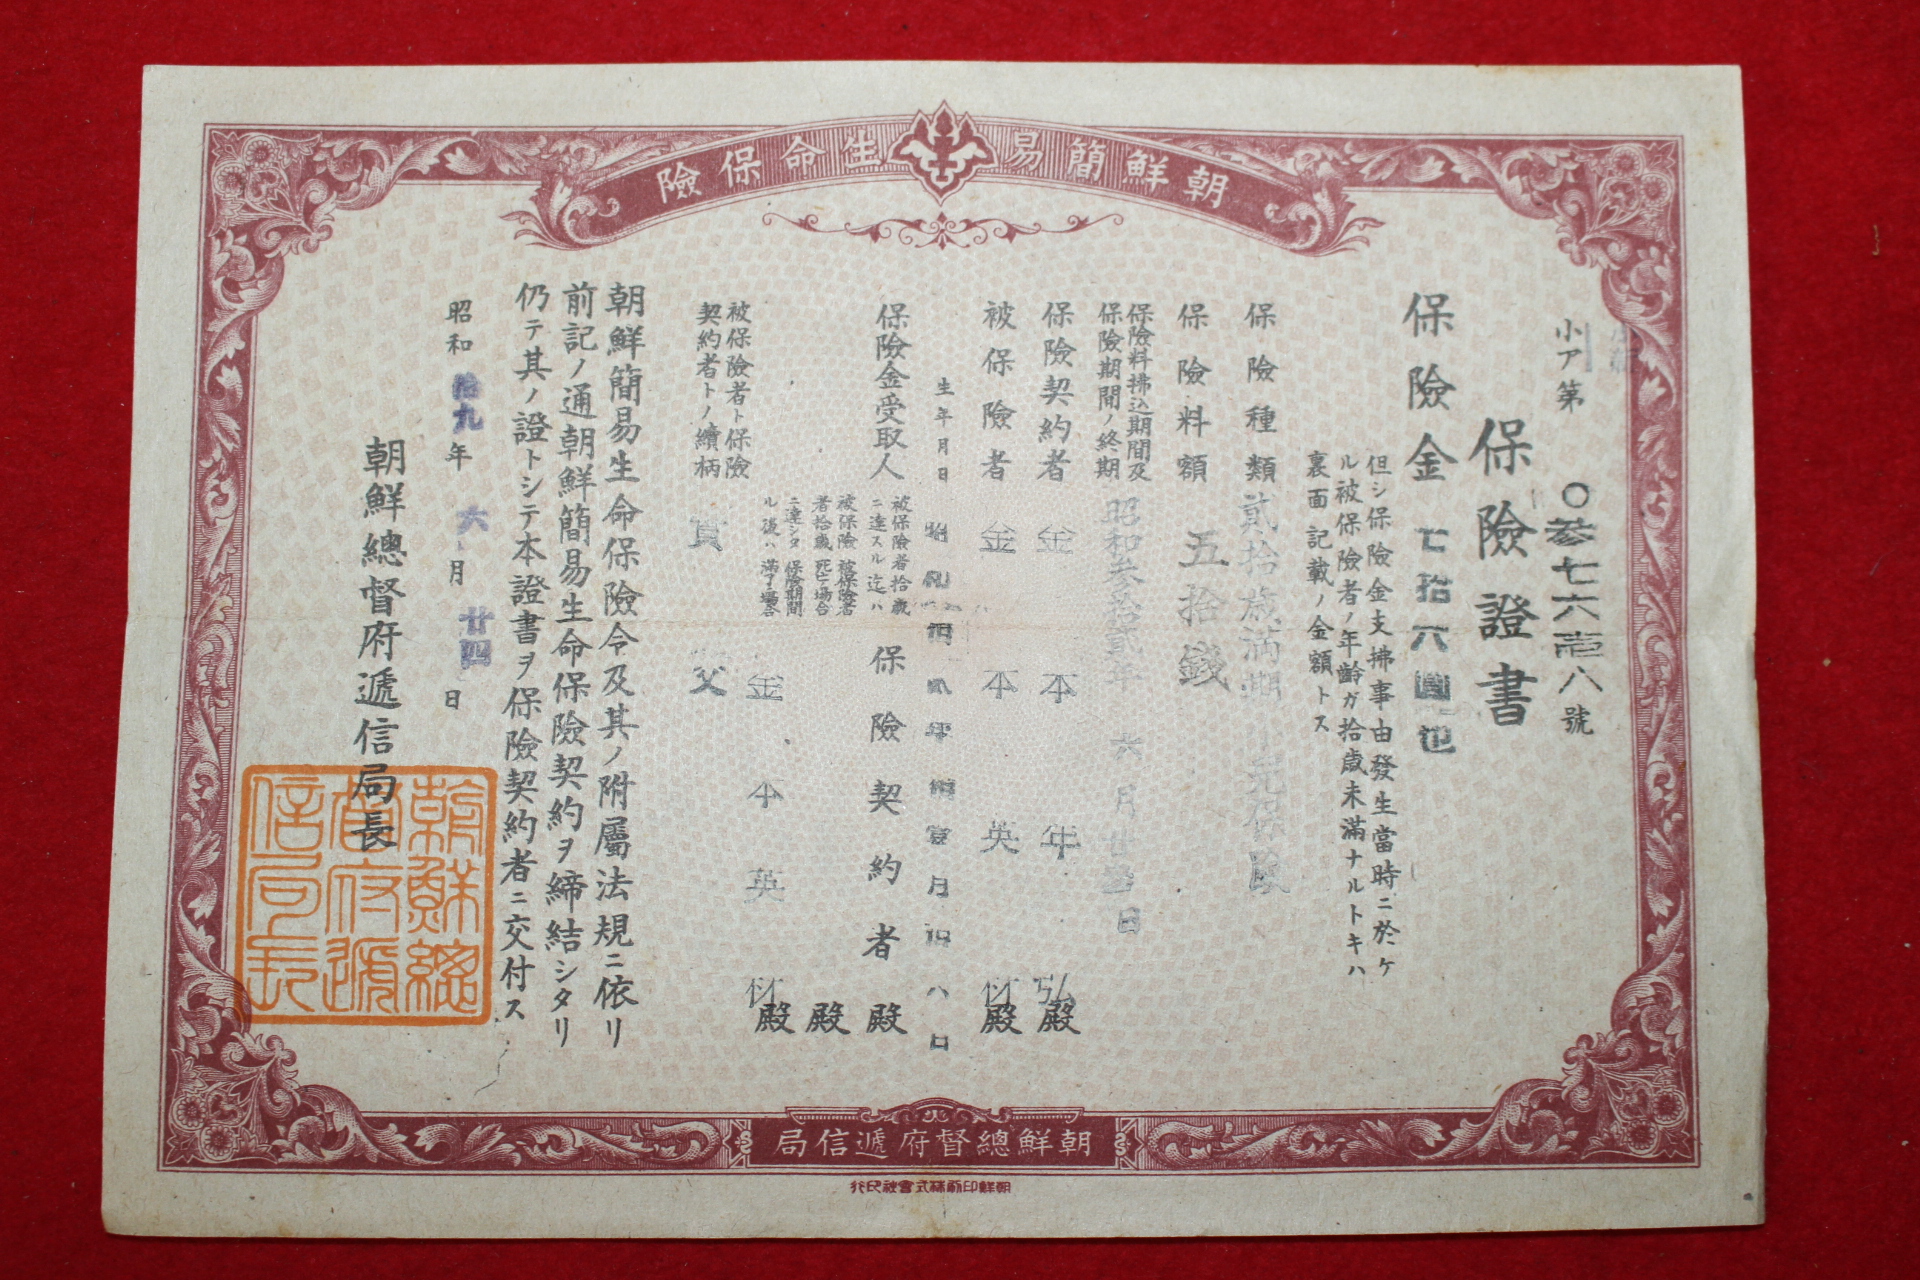 朝鮮簡易生命保險
小ア第〇參七六壱八號
保險證書
保險金七拾六圓也
但シ保險金支拂事由發生當時ニ於ケ
ル被保險者ノ年齡ガ拾歲未滿ナルトキハ
裏面記載ノ金額トス
保險種類 貳拾歲滿期 保險
保險料額 五拾錢
保險料拂込期間及
保險期間ノ終期
昭和參拾貳年六月廿 日
保險契約者 金本年弘殿
被保險者 金本英 殿
生年月日 年 月 八日
保險金受取人
被保險者拾歲
ニ達スル迄ハ
保險契約者殿
被保險者被保險者
者拾歲死亡場合
殿
ニ達シタ保險期間
ル後ハ滿了場合
金本英 殿
被保險者ト保險
契約者トノ續柄
父
朝鮮簡易生命保險令及其ノ附屬法規ニ依リ
前記ノ通朝鮮簡易生命保險契約ヲ締結シタリ
仍テ其ノ證トシテ本證書ヲ保險契約者ニ交付ス
昭和拾九年六月廿四日
朝鮮總督府遞信局長
朝鮮總
督府遞
信局長
朝鮮總督府遞信局
朝鮮印刷株式會社印行